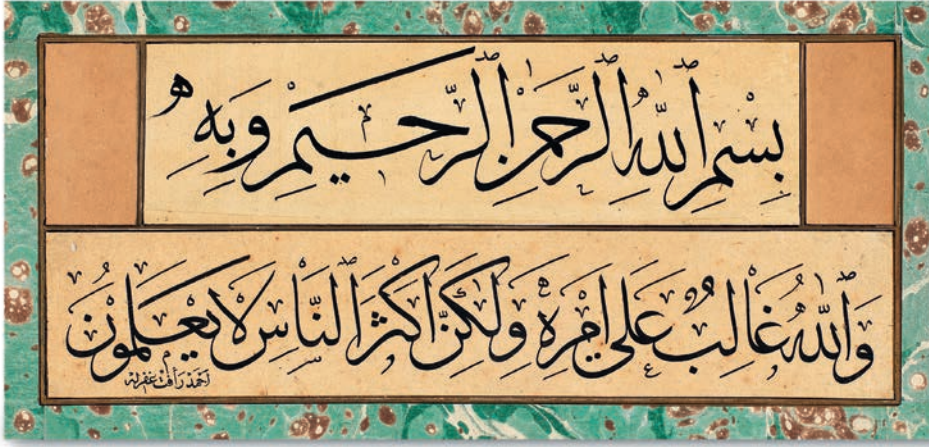 بِسْمِ ٱللّٰهِ ٱلرَّحْمٰنِ ٱلرَّحِيمِ وَبِهِ
وَٱللّٰهُ غَالِبٌ عَلٰى اَمْرِهِ وَلٰكِنَّ اَكْثَرَ ٱلنَّاسِ لَا يَعْلَمُونَ
احمد رأفت غفر له